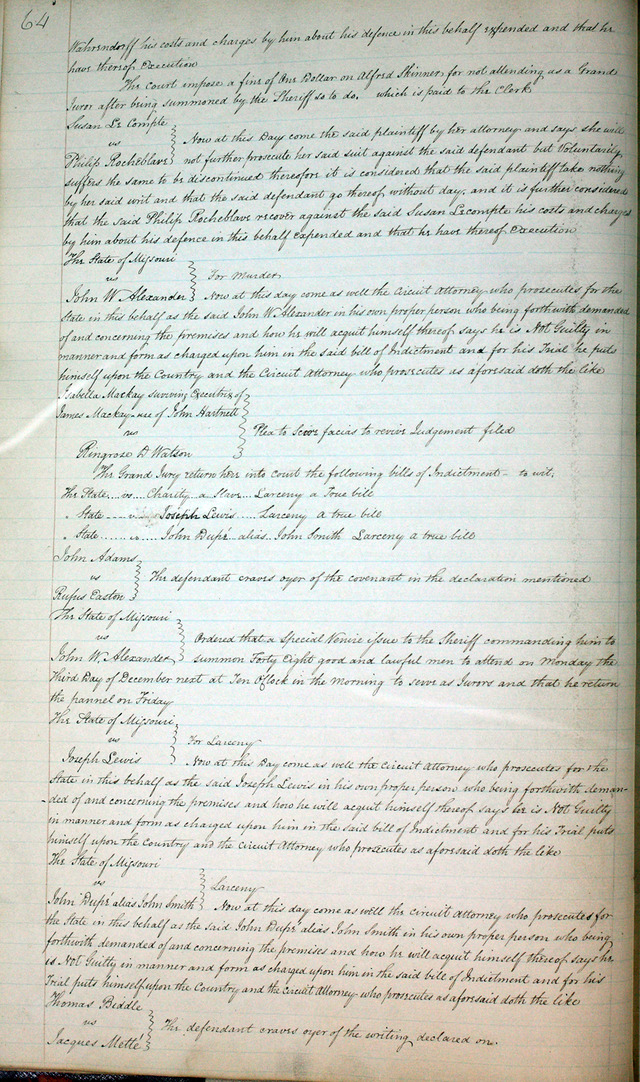 64
Wahrendorff his costs and charges by him about his defence in this behalf expended and that he
have thereof Execution
The court impose a fine of One Dollar on Alfred Skinner, for not attending as a Grand
Juror after being summoned by the Sheriff so to do. which is paid to the Clerk
Susan Le Compte
vs
Philip Rocheblave
Now at this Day come the said plaintiff by her attorney and says she will
not further prosecute her said suit against the said defendant but Voluntarily
suffers the same to be discontinued therefore it is considered that the said plaintiff take nothing
by her said writ and that the said defendant go thereof without day, and it is further considered
that the said Philip Rocheblave recover against the said Susan Lecompte his costs and charges
by him about his defence in this behalf Expended and that he have thereof Execution
The State of Missouri
vs
John W Alexander
For Murder
Now at this day come as well the Circuit Attorney who prosecutes for the
State in this behalf as the said John W Alexander in his own proper person who being forthwith demanded
of and concerning the premises and how he will acquit himself thereof says he is Not Guilty in
manner and form as charged upon him in the said bill of Indictment and for his Trial he puts
himself upon the Country and the Circuit Attorney who prosecutes as aforesaid doth the like
Isabella Mackay surviving Executrix of
James Mackay use of John Hartnett
vs
Ringrose D Watson
Plea to Scire facias to revive Judgement filed
The Grand Jury return here into court the following bills of Indictment - to wit;
The State .. vs ... Charity a Slave .. Larceny a True bill
" State .... vs Joseph Lewis ..... Larceny a true bill
" State ....... vs .. John Dupé alias John Smith Larceny a true bill
John Adams
vs
Rufus Easton
The defendant craves oyer of the covenant in the declaration mentioned
The State of Missouri
vs
John W. Alexander
Ordered that a special Venire issue to the Sheriff commanding him to
summon Forty Eight good and lawful men to attend on Monday the
Third Day of December next at Ten O'Clock in the Morning to serve as Jurors and that he return
the pannel on Friday
The State of Missouri
vs
Joseph Lewis
For Larceny
Now at this Day come as well the Circuit Attorney who prosecutes for the
State in this behalf as the said Joseph Lewis in his own proper person who being forthwith deman-
-ded of and concerning the premises and how he will acquit himself thereof says he is Not Guilty
in manner and form as charged upon him in the said bill of Indictment and for his Trial puts
himself upon the Country and the Circuit Attorney who prosecutes as aforesaid doth the like
The State of Missouri
vs
John Dupé alias John Smith
Larceny
Now at this day come as well the Circuit Attorney who prosecutes for
the State in this behalf as the said John Dupé alias John Smith in his own proper person who being
forthwith demanded of and concerning the premises and how he will acquit himself thereof says he
is Not Guilty in manner and form as charged upon him in the said bill of Indictment and for his
Trial puts himself upon the Country and the Circuit Attorney who prosecutes as aforesaid doth the like
Thomas Biddle
vs
Jacques Metté
The defendant craves oyer of the writing declared on.